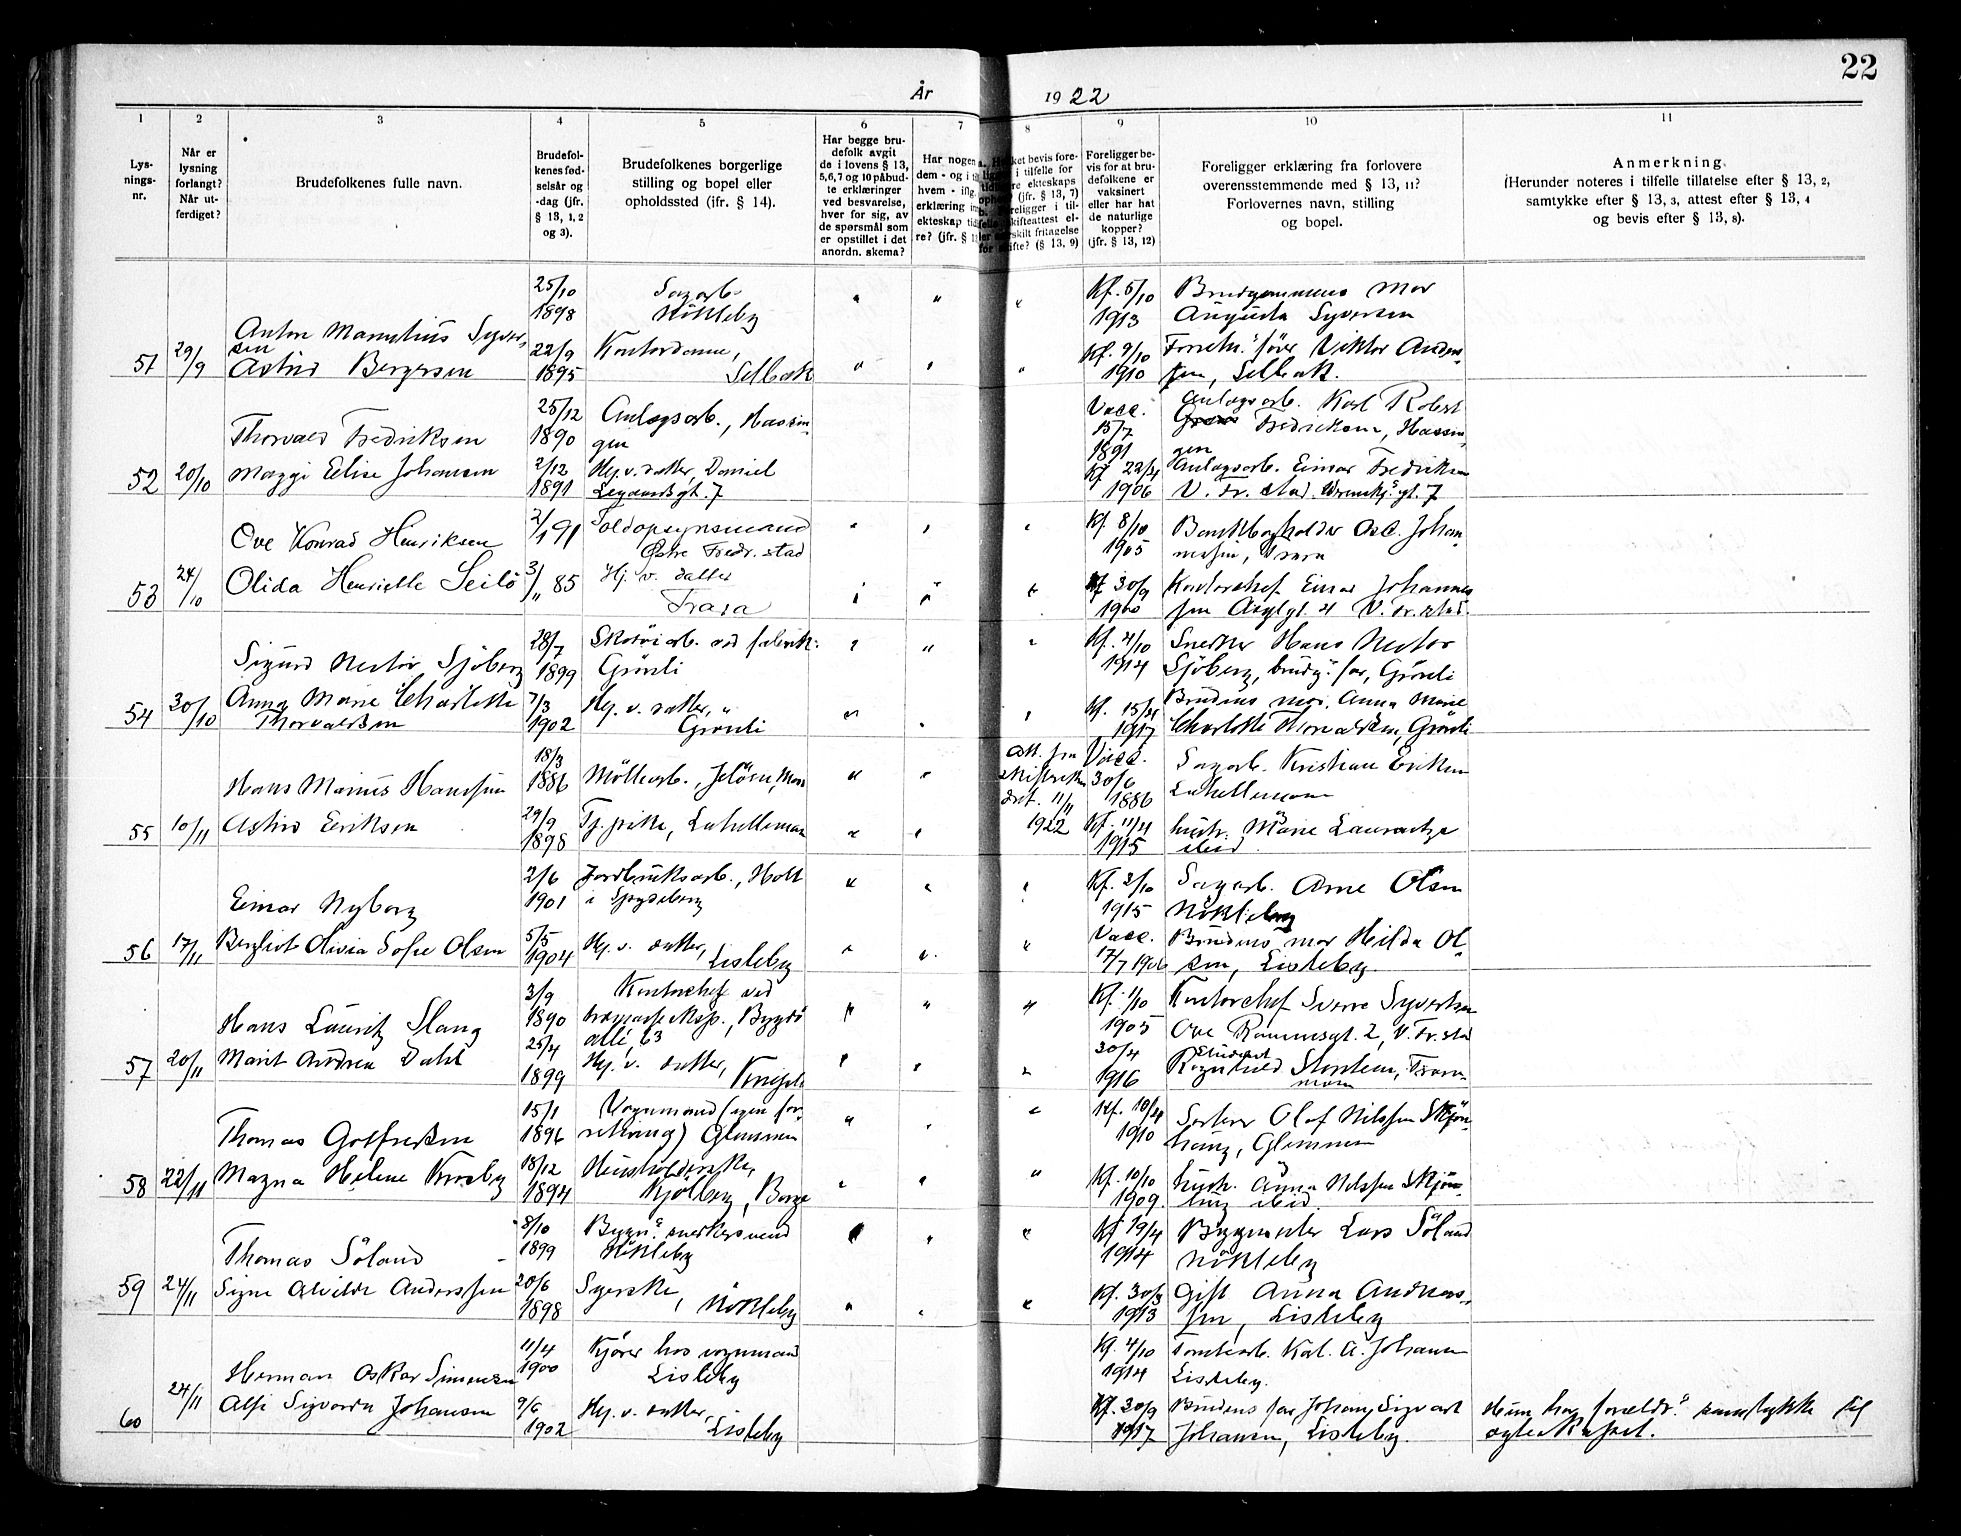 22
År 1922
1 2 3 4 5 6 7 8 9 10 11
Lys-
nings-
nr.
Når er
lysning
forlangt?
Når ut-
ferdiget?
Brudefolkenes fulle navn.
Brudefol-
kenes fød-
selsår og
-dag (jfr.
§ 13, 1, 2
og 3).
Brudefolkenes borgerlige
stilling og bopel eller
opholdssted (ifr. § 14).
Har begge bru-
defolk avgit
de i lovens § 13,
5,6,7 og 10 påbud-
te erklæringer
ved besvarelse,
hver for sig, av
de spørsmål som
er opstillet i det
anordn. skema?
Har nogen
dem - og i
hvem - iflg.
erklæring
ekteskap tid
re? (jfr. §
ket bevis fore-
i tilfelle for
re ekteskaps
(jfr. § 13, 7)
religger i til-
skifteattest el-
rskilt fritagelse
ifte? (§ 13, 9)
Foreligger be-
vis for at bru-
defolkene er
vaksinert
eller har hat
de naturlige
kopper?
(jfr. § 13, 12)
Foreligger erklæring fra forlovere
overensstemmende med § 13, 11?
Forlovernes navn, stilling
og bopel.
Anmerkning.
(Herunder noteres i tilfelle tillatelse efter § 13, 2,
samtykke efter § 13, 3, attest efter § 13, 4
og bevis efter § 13, 8).
51 29/9
Anton Marentius Syver-
sen
25/10
1898
Sagarb.
Nökleby
Kf. 5/10
1913
Brudgommens mor
Augusta Syversen
Astrid Bergersen
22/9
1895
Kontordame,
Selbak
Kf. 9/10
1910
Forretn.fører Viktor Ander-
sen, Selbak.
52 20/10
Thorvald Fredriksen
25/12
1890
Anlegsarb., Hassin-
gen
Vacc.
15/7
1891
Anlegsarb. Karl Robert
Fredriksen, Hassin-
gen
Maggi Elise Johansen
2/12
1891
Hj. v. datter, Daniel
Legaardsgt. 7
Kf 22/4
1906
Anlegsarb. Einar Fredriksen
V. Fr. stad. gt. 7
53 24/10
Ove Konrad Henriksen
2/1 91
Toldopsynsmand
Østre Fredr.stad
Kf. 8/10
1905
Bankbogholder Osc. Johan-
nesen, Trara
Olida Henriette Seilö
3/11 85
Hj. v. datter
Trara
Kf 30/9
1900
Kontorchef Einar Johannes-
sen Asylgt. 4 V. Fr. stad.
54 30/10
Sigurd Nestor Sjöberg
28/7
1899
Skotöiarb. ved fabrik
Grönli
Kf. 4/10
1914
Snekker Hans Nestor
Sjöberg, brudg.s far, Grönli
Anna Marie Charlotte
Thorvaldsen
7/3
1902
Hj. v. datter,
Grönli
Kf. 15/4
1917
Brudens mor, Anna Marie
Charlotte Thorvaldsen, Grönli
55 10/11
Hans Marius Hansen
18/3
1886
Möllearb., Jelöen, Moss
Att. fra
skifteretten
dat. 11/11
1922
Vacc.
30/6
1886
Sagarb. Kristian Eriksen
Lahellemoen
Astrid Eriksen
29/9
1898
Tj.pike, Lahellemoen
Kf. 11/4
1915
hustr. Marie
ibid.
56 17/11
Einar Nyborg
2/6
1901
Jordbruksarb., Holt
i Spydeberg
Kf. 3/10
1915
Sagarb. Arne Olsen
Nökleby
Bergliot Olivia Sofie Olsen
5/5
1904
Hj. v. datter,
Lisleby
Vacc.
17/7 1906
Brudens mor Hilda Ol-
sen, Lisleby.
57 20/11
Hans Lauritz Slang
3/9
1890
Kontorchef ved
Bygdö
alle, 63
Kf. 1/10
1905
Kontorchef Sverre Syvertsen
Ove Rammsgt. 2, V. Fr. stad
Marit Andrea Dahl
25/4
1899
Hj. v. datter,
30/4
1916
Student
Ragnhild
58 22/11
Thomas Gotfredsen
15/1
1896
Vognmand (egen for-
retning) Glemmen
Kf. 10/4
1910
Olof Nilssen Skjön-
haug, Glemmen
Magna Helene Krosby
18/12
1894
Husholderske,
Kjölberg, Borge
Kf. 10/10
1909.
hustr. Anna Nilssen Skjön-
haug ibid.
59 24/11
Thomas Söland
8/10
1899
Bygn. snekkersvend
Nökleby
Kf 19/4
1914
Byggmester Lars Söland
Nökleby
Signe Alvilde Anderssen
20/6
1898
Syerske,
Nökleby
Kf. 30/3
1913
Gift Anna Andreas-
sen, Lisleby
60 24/11
Herman Oskar Simensen
11/4
1900
Kjører hos vognmand
Lisleby
Kf. 4/10
1914
Tomtearb. Karl. A. Johansen
Lisleby.
Alfi Sigvarda Johansen
9/6
1902
Hj. v. datter,
Lisleby
Kf. 30/9
1917
Brudens far Johan Sigvart
Johansen, Lisleby.
Hun har foreldr.s samtykke til
egteskapet.